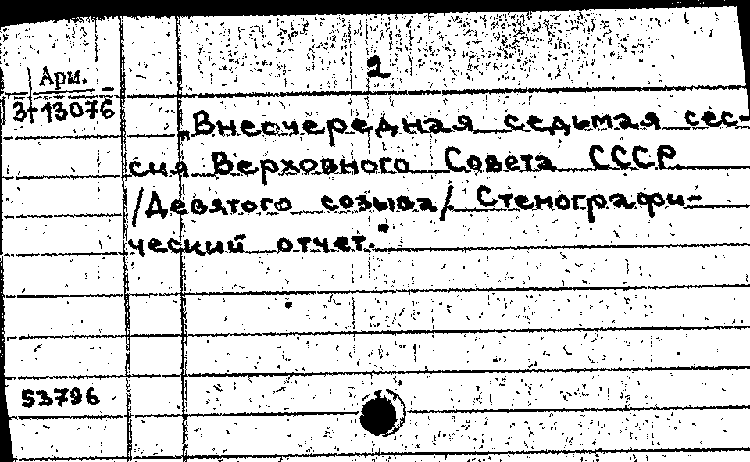 2
Арм.
3т13076
„Внеочередная седьмая сес-
сия Верховного Совета СССР
/Девятого созыва/. Стенографи-
ческий отчет."
53796